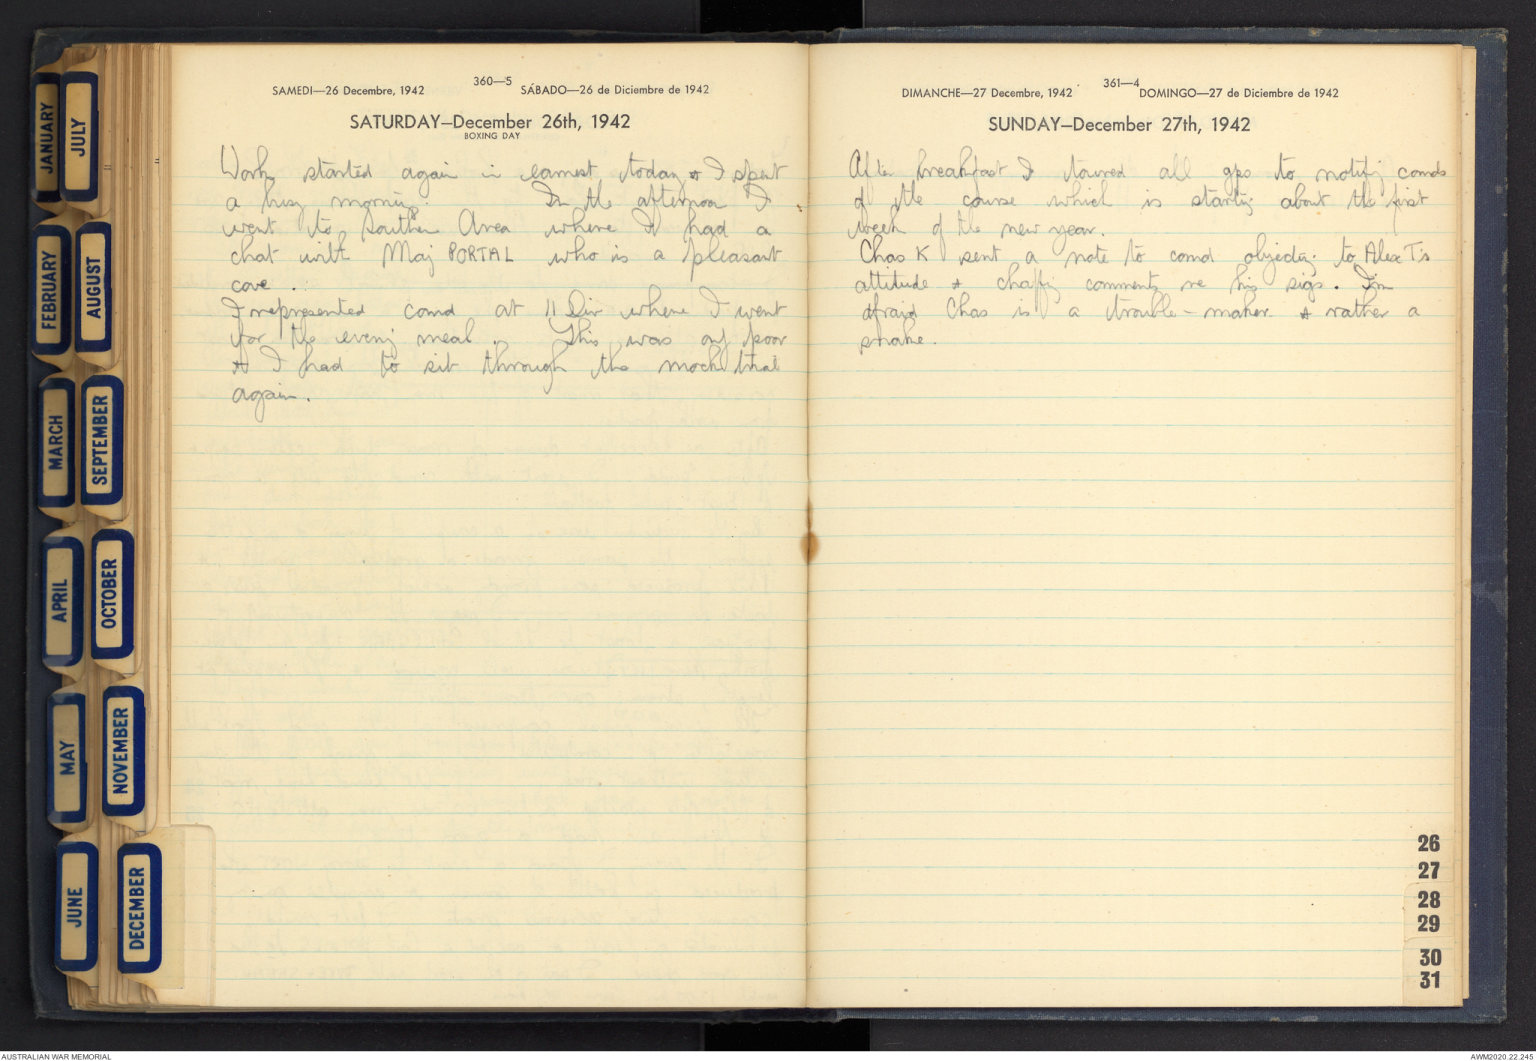 JANUARY
FEBRUARY
MARCH
APRIL
MAY
JUNE
JULY
AUGUST
SEPTEMBER
OCTOBER
NOVEMBER
DECEMBER
360—5
SAMEDI—26 Decembre, 1942 SÁBADO—26 de Diciembre de 1942
SATURDAY—December 26th, 1942
BOXING DAY
Work started again in earnest today & I spent
a busy morning. In the afternoon I
went to Southern Area where I had a
chat with Maj PORTAL who is a pleasant
cove.
I represented comd at 11 Div where I went
for the evening meal. This was only poor
& I had to sit through the mock trial
again.
361—4
DIMANCHE—27 Decembre, 1942 DOMINGO—27 de Diciembre de 1942
SUNDAY—December 27th, 1942
After breakfast I toured all gps to notify comds
of the course which is starting about the first
week of the new year.
Chas K sent a note to comd objecting to Alex T's
attitude & chaffing comments re his sigs. I'm
afraid Chas is a trouble-maker & rather a
snake.
26
27
28
29
30
31
AUSTRALIAN WAR MEMORIAL
AWM2020.22.245